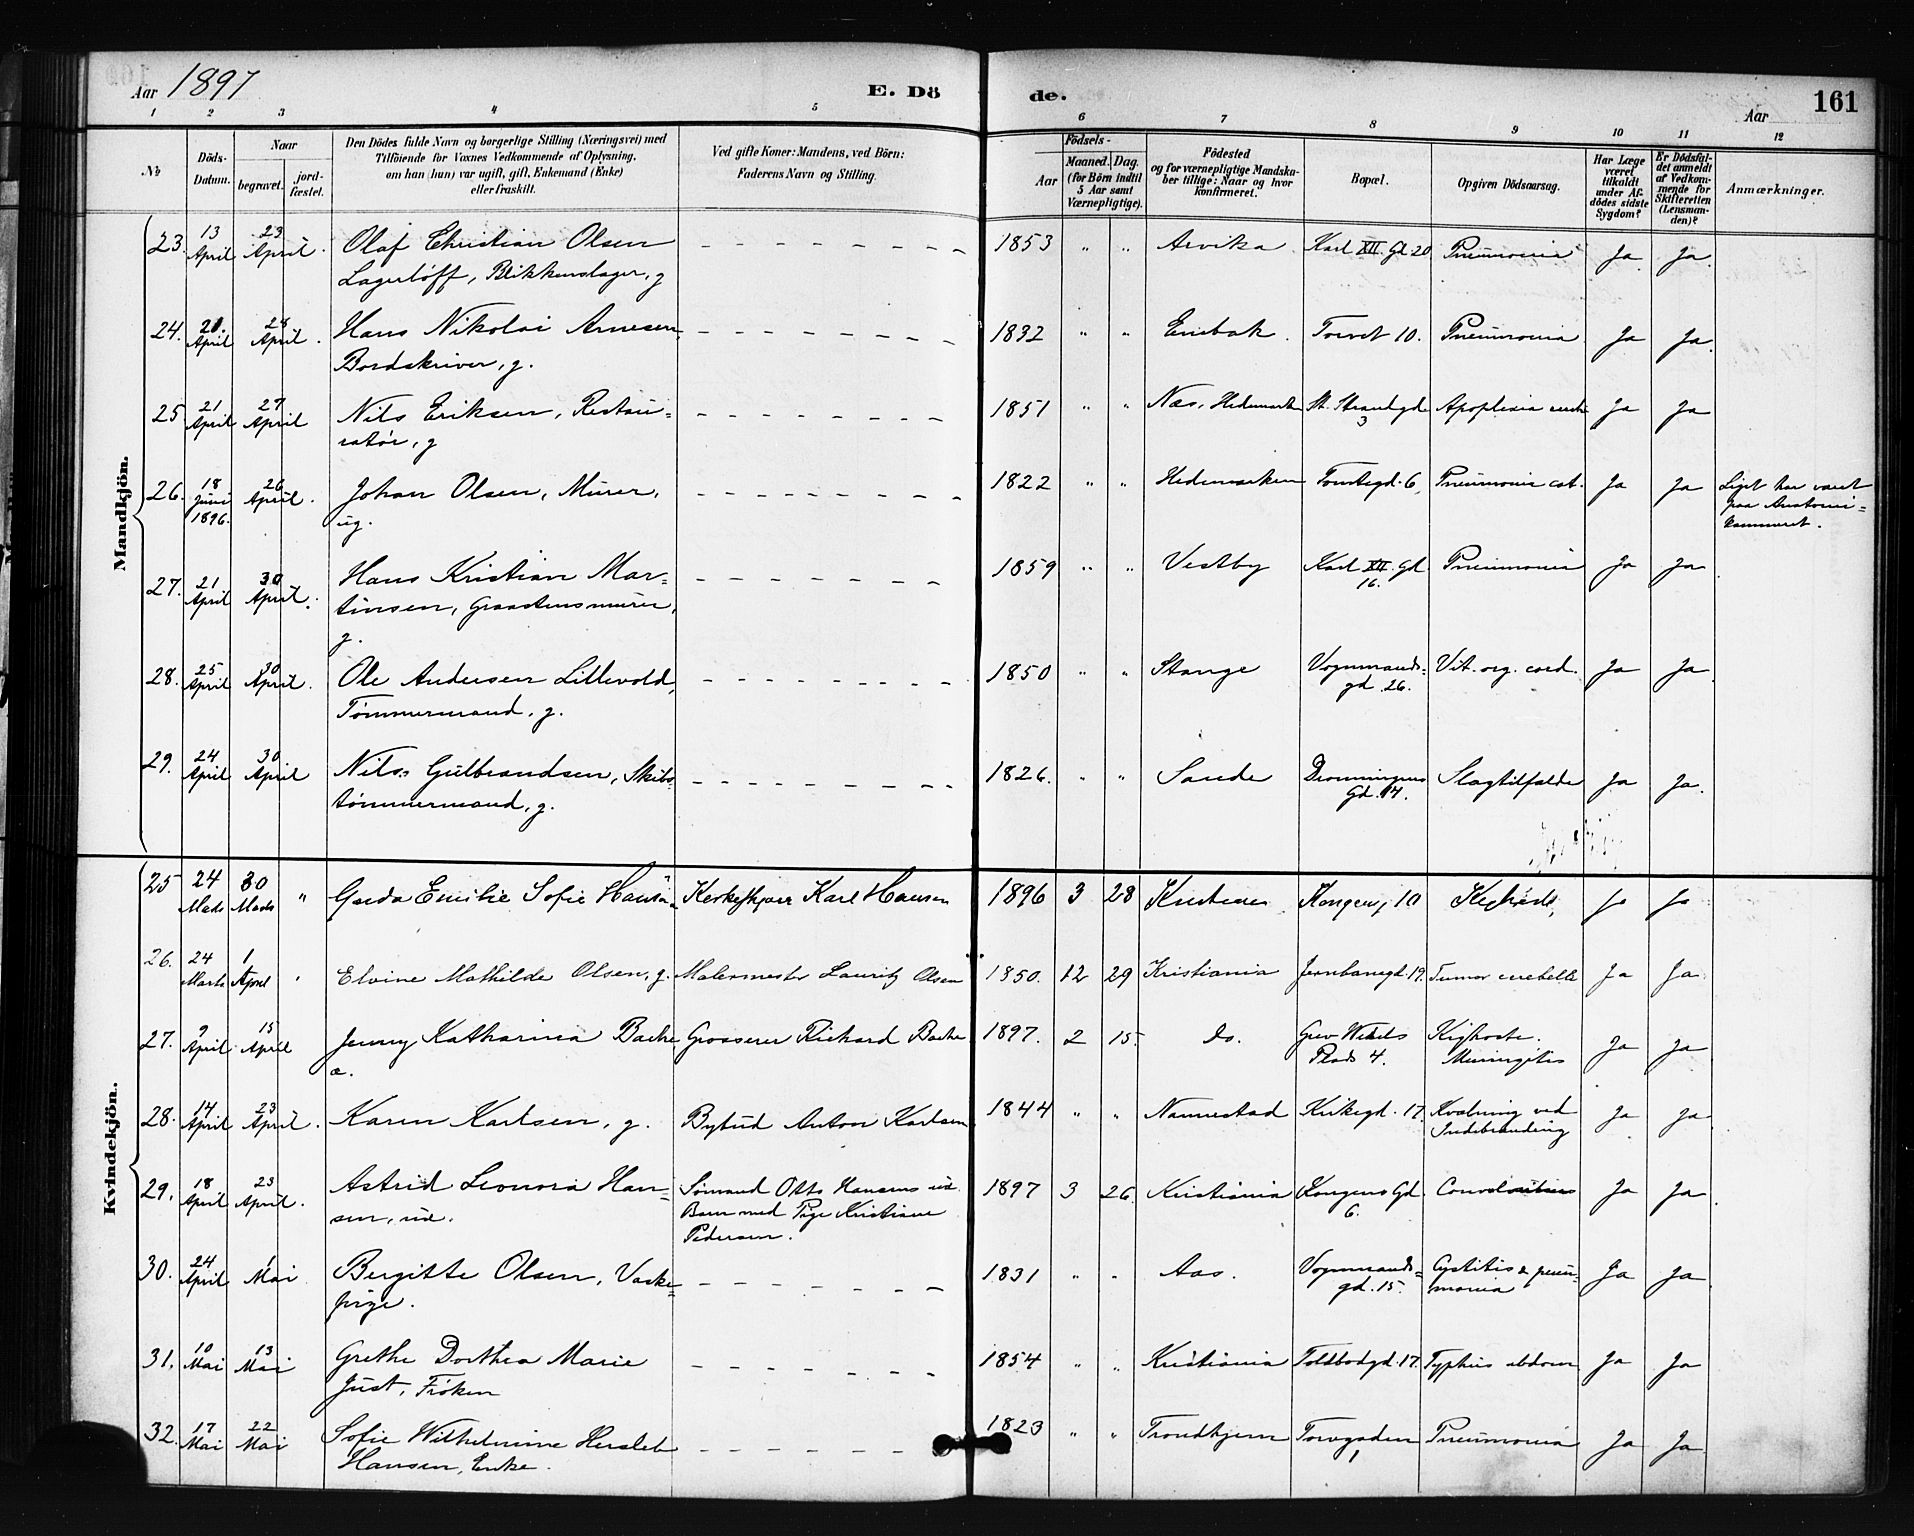 Aar 1897
E. Dö
de.
Aar
161
1 2 3 4 5 6 7 8 9 10 11 12
No
Döds-Datum.
Naar
begravet.
jord-fæstet.
Den Dödes fulde Navn og borgerlige Stilling (Næringsvei) med
Tilföiende for Voxnes Vedkommende af Oplysning,
om han (hun) var ugift, gift, Enkemand (Enke)
eller fraskilt.
Ved gifte Koner: Mandens, ved Börn:
Faderens Navn og Stilling.
Födsels-
Aar
Maaned. Dag.
(for Börn indtil
5 Aar samt
Værnepligtige).
Födested
og for værnepligtige Mandska-
ber tillige: Naar og hvor
konfirmeret.
Bopæl.
Opgiven Dödsaarsag.
Har Læge
været
tilkaldt
under Af-
dödes sidste
Sygdom?
Er Dödsfal-
det anmeldt
af Vedkom-
mende for
Skifteretten
(Lensman-
den)?
Anmærkninger.
Mandkjön.
23. 13 April 23 April. Olaf Christian Olsen 1853 " " Arvika Karl XII. Gd. 20 Pneumonia Ja Ja
Lagerløff, Blikkenslager, g
24. 21. April 28 April. Hans Nikolai Arnesen, 1832 " " Enebak. Torvet 10. Pneumonia Ja Ja.
Bordskriver, g.
25 21 April 27 April Nils Eriksen, Restau= 1851 " " Næs, Hedemark St. Strandgd. 3 Apoplexia Ja Ja
ratør, g
26. 18 Juni 1896. 26 April. Johan Olsen, Murer, 1822 " " Hedemarken Tomtegd. 6, Pneumonia cat. Ja Ja Liget har været
ug. paa Anatomi=
kammeret.
27. 21 April 30 April. Hans Kristian Mar= 1859 " " Vestby Karl XII. Gd. 16. Pneumonia Ja Ja
tinsen, Graastensmurer,
g.
28. 25 April 30 April. Ole Andersen Lillevold, 1850 " " Stange Vognmands= gd. 26. Vit. org. cord. Ja Ja
Tømmermand, g.
29. 24 April 30 April Nils Gulbrandsen, Skibs= 1826. " " Sande Dronningens Gd. 14. Slagtilfælde Ja Ja.
tømmermand, g.
Kvindekjön.
25 24 Marts 30 Marts " Emilie Sofie Hansen Karl Hansen 1896 3 28 10 Ja Ja
26. 24 Marts 1 April " Elvine Mathilde Olsen, g. Malermester Lauritz Olsen 1850. 12 29 Kristiania Jernbanegd. 19. Tumor cerebelli Ja Ja
27. 9 April 15 April Jenny Katharina Bache Grosserer Richard Bache 1897. 2 15. do. Grev Wedels Plads 4. Kighoste. Meningitis Ja Ja
æ.
28. 14 April 23 April. Karen Karlsen, g. Bybud Anton Karlsen 1844 " " Nannestad Kirkegd. 17. Kvælning ved Indebrænding Ja Ja
29. 18 April 23 April. Astrid Leonora Han= Sømand Otto Hansens uæ. 1897 3 26. Kristiania Kongens Gd. 6. Convulsiones Ja Ja
sen, uæ. Barn med Pige Kristiane
Pedersen.
30. 24 April 1 Mai Bergitte Olsen, Vaske= 1831 " " Aas. Vognmands= gd. 15. Cystitis & pneu= monia Ja Ja
pige.
31. 10 Mai 13 Mai Grethe Dorthea Marie 1854 " " Kristiania Toldbodgd. 17. Typhus abdom Ja Ja
Just, Frøken
32. 17 Mai 22 Mai Sofie Wilhelmine Hersleb 1823 " " Trondhjem Torvgaden 1 Pneumonia Ja Ja
Hansen, Enke.